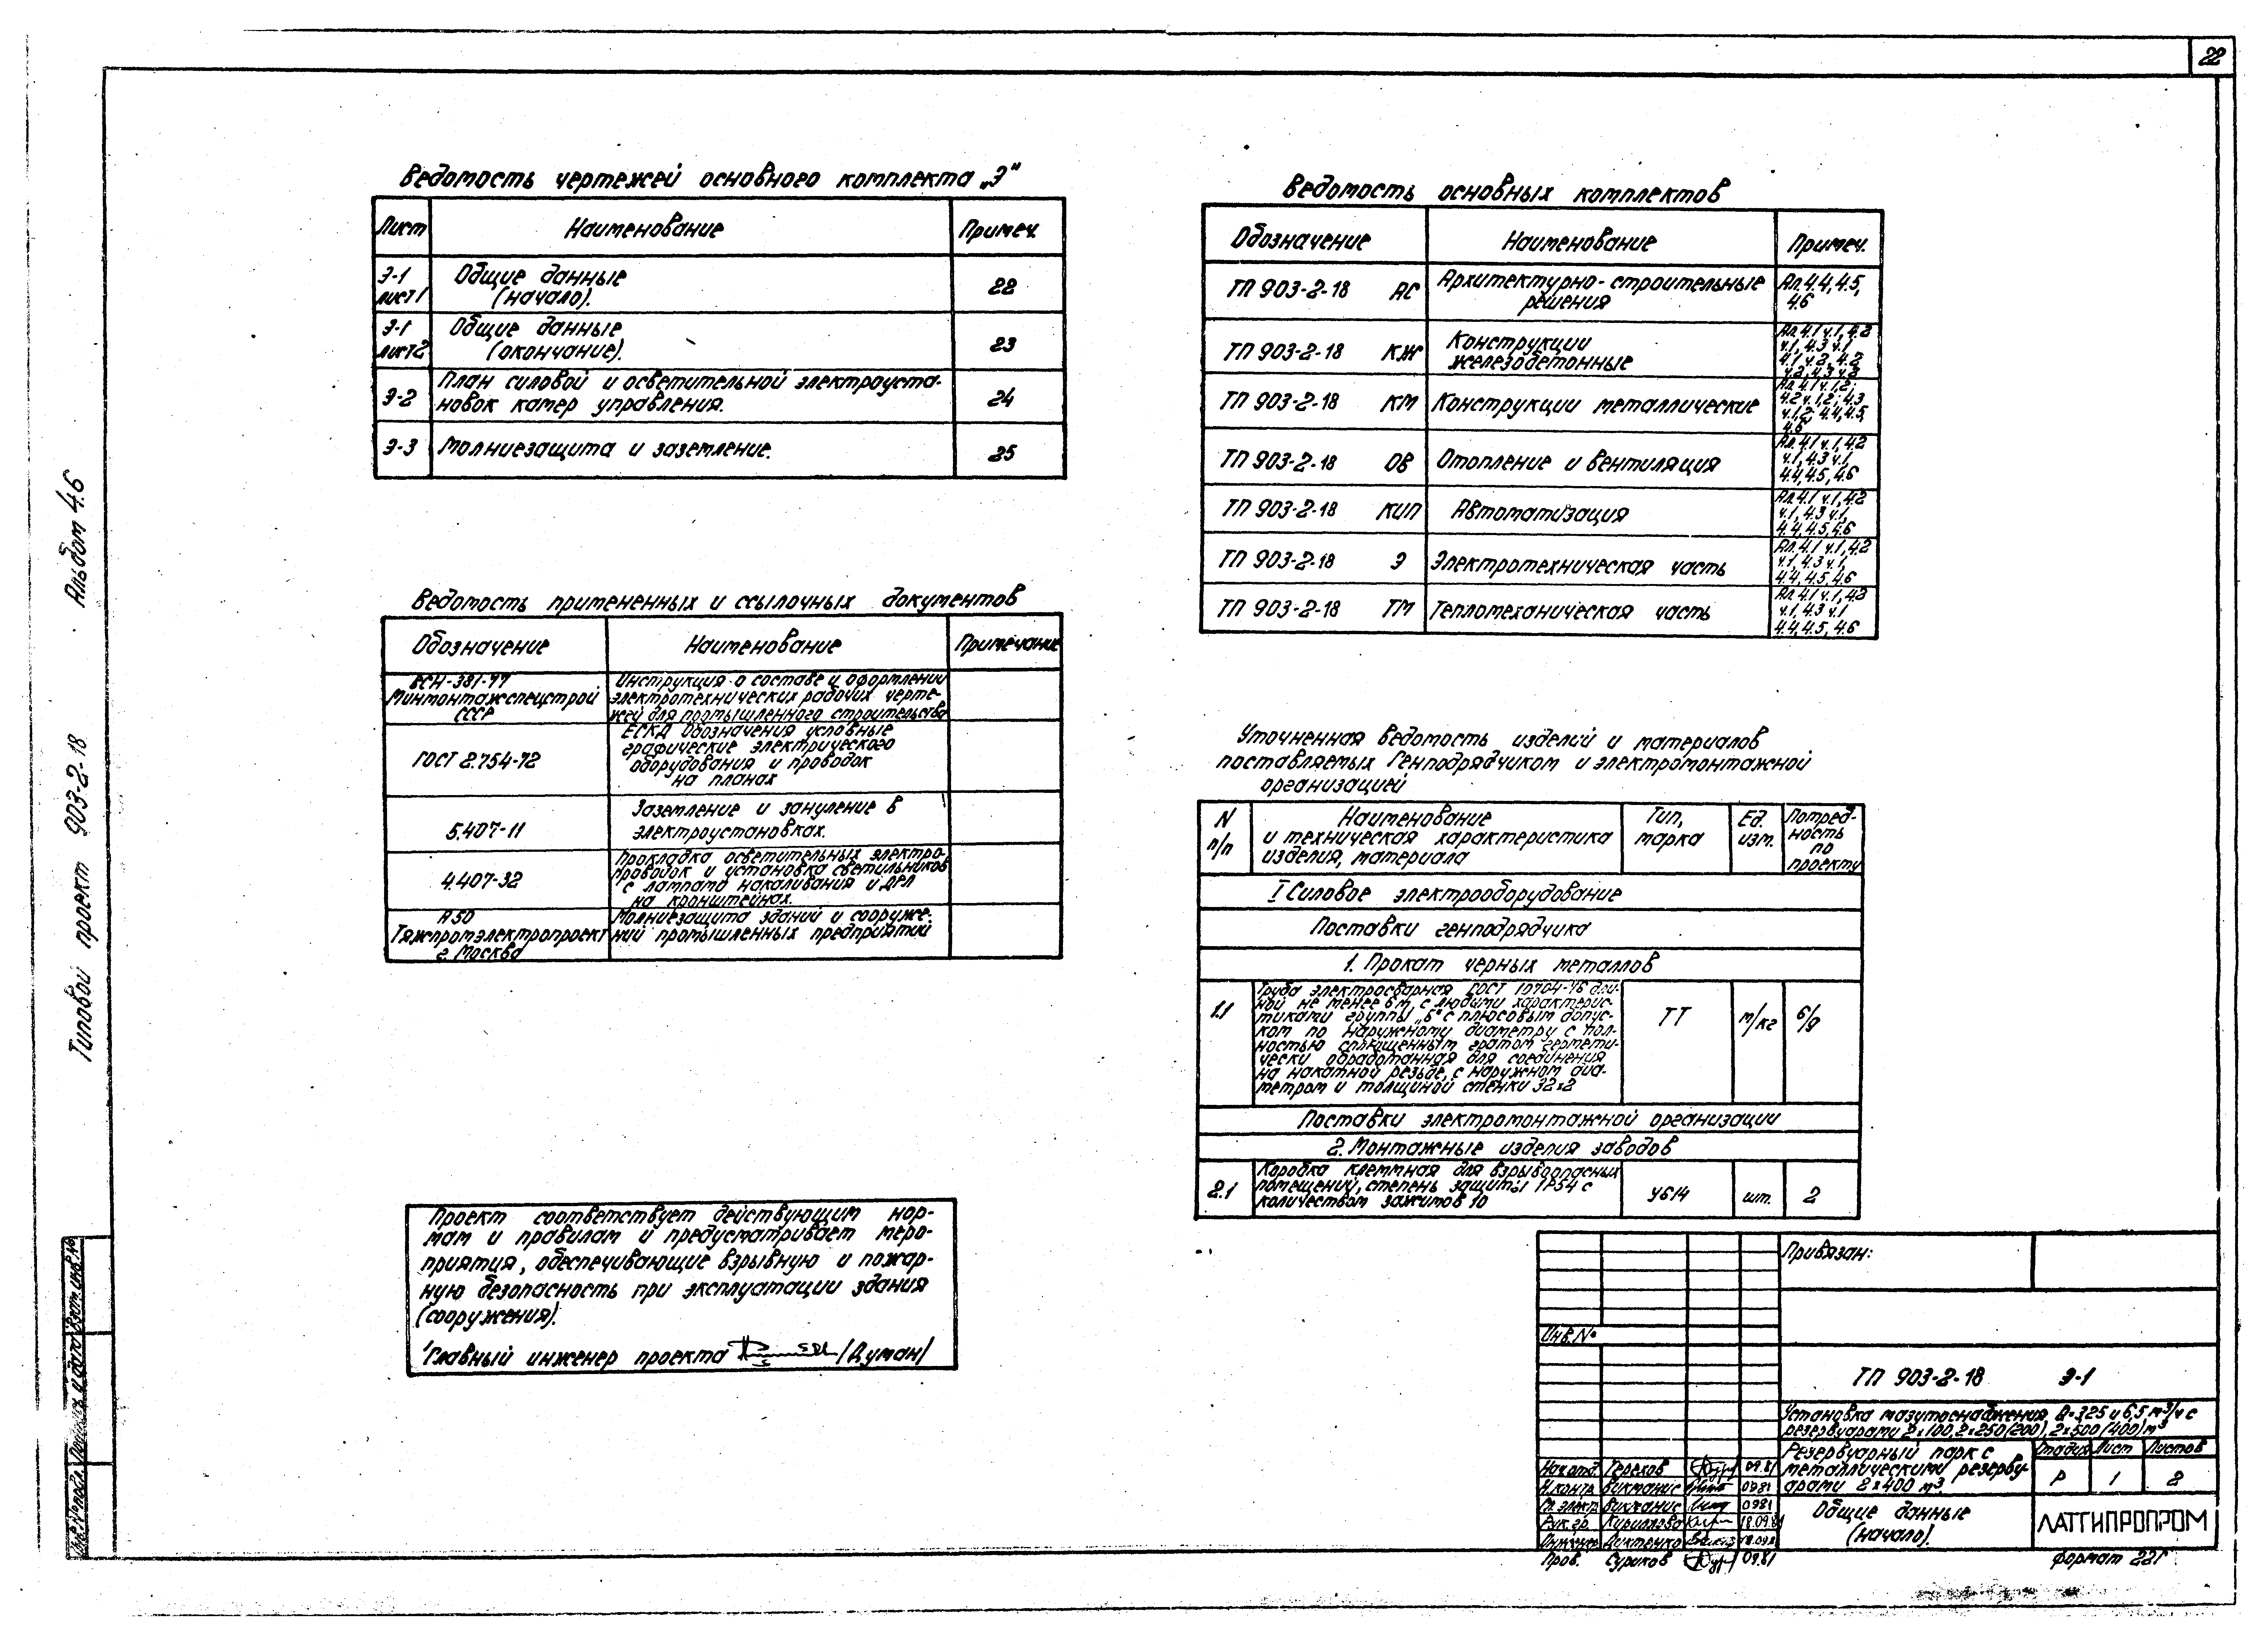 22
Альбом 4.6
Типовой проект 903-2-18
Ведомость чертежей основного комплекта „Э"
Лист Наименование Примеч.
Э-1 лист 1 Общие данные (начало). 22
Э-1 лист 2 Общие данные (окончание). 23
Э-2 План силовой и осветительной электроуста-
новок камер управления. 24
Э-3 Молниезащита и заземление. 25
Ведомость примененных и ссылочных документов
Обозначение Наименование Примечание
ВСН-381-77
Минмонтажспецстрой
СССР
Инструкция о составе и оформлении
электротехнических рабочих черте-
жей для промышленного строительства
ГОСТ 2.754-72
ЕСКД Обозначения условные
графические электрического
оборудования и проводок
на планах
5.407-11
Заземление и зануление в
электроустановках.
4.407-32
Прокладка осветительных электро-
проводок и установка светильников
с лампами накаливания и ДРЛ
на кронштейнах.
А50
Тяжпромэлектропроект
г. Москва
Молниезащита зданий и сооруже-
ний промышленных предприятий
Проект соответствует действующим нор-
мам и правилам и предусматривает меро-
приятия, обеспечивающие взрывную и пожар-
ную безопасность при эксплуатации здания
(сооружения).
Главный инженер проекта /Думан/
Ведомость основных комплектов
Обозначение Наименование Примеч.
ТП 903-2-18 АС Архитектурно-строительные
решения
Ал. 4.4, 4.5,
4.6
ТП 903-2-18 КЖ Конструкции
железобетонные
Ал. 4.1 ч.1, 4.2
ч.1, 4.3 ч.1
4.1 ч.2, 4.2
ч.2, 4.3 ч.2
ТП 903-2-18 КМ Конструкции металлические
Ал. 4.1 ч.1,2;
4.2 ч.1,2; 4.3
ч.1,2, 4.4, 4.5,
4.6
ТП 903-2-18 ОВ Отопление и вентиляция
Ал. 4.1 ч.1, 4.2
ч.1, 4.3 ч.1
4.4, 4.5, 4.6
ТП 903-2-18 КИП Автоматизация
Ал. 4.1 ч.1, 4.2
ч.1, 4.3 ч.1,
4.4, 4.5, 4.6
ТП 903-2-18 Э Электротехническая часть
Ал. 4.1 ч.1, 4.2
ч.1, 4.3 ч.1,
4.4, 4.5, 4.6
ТП 903-2-18 ТМ Тепломеханическая часть
Ал. 4.1 ч.1, 4.2
ч.1, 4.3 ч.1
4.4, 4.5, 4.6
Уточненная ведомость изделий и материалов
поставляемых Генподрядчиком и электромонтажной
организацией
N п/п
Наименование
и техническая характеристика
изделия, материала
Тип,
марка
Ед.
изм.
Потреб-
ность
по
проекту
I Силовое электрооборудование
Поставки генподрядчика
1. Прокат черных металлов
1.1
Труба электросварная ГОСТ 10704-76 дли-
ной не менее 6 м, с любыми характерис-
тиками группы „Б" с плюсовым допус-
ком по наружному диаметру с пол-
ностью сплющенным гратом гермети-
чески обработанная для соединения
на накатной резьбе, с наружном диа-
метром и толщиной стенки 32х2
ТТ м/кг 6/9
Поставки электромонтажной организации
2. Монтажные изделия заводов
2.1
Коробка клеммная для взрывоопасных
помещений, степень защиты IP54 с
количеством зажимов 10
У614 шт. 2
Привязан:
Инв. №
ТП 903-2-18 Э-1
Установка мазутоснабжения Q=3,25 и 6,5 м³/ч с
резервуарами 2х100, 2х250(200), 2х500(400) м³
Резервуарный парк с
металлическими резерву-
арами 2х400 м³.
Стадия Лист Листов
Р 1 2
Общие данные
(начало).
ЛАТГИПРОПРОМ
Нач.отд. Терехов 09.81
Н.контр. Викманис 09.81
Гл.электр. Викманис 09.81
Рук.гр. Кириллова 18.09.81
Инженер Диктенко 18.09.81
Пров. Суриков 09.81
Формат 22Г
Инв.№ подл. Подпись и дата Взам.инв.№